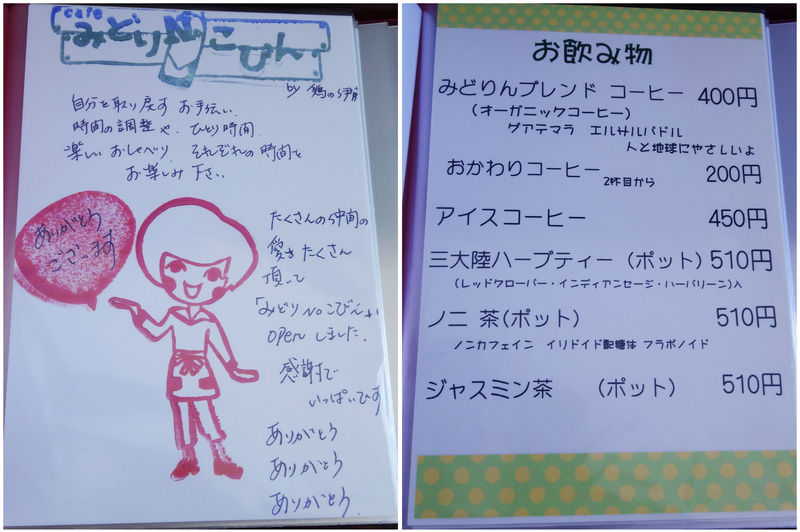 cafe
みどりNoこびん
by 鶏の伊前
自分を取り戻す お手伝い
時間の調整や、ひとり時間
楽しい おしゃべり それぞれの時間を
お楽しみ 下さい
ありがとう
ございます
たくさんの仲間の
愛を たくさん
頂いて
「みどりNoこびん」
openしました。
感謝で
いっぱいです
ありがとう
ありがとう
ありがとう
お飲み物
みどりんブレンド コーヒー 400円
(オーガニックコーヒー)
グアテマラ エルサルバドル
人と地球にやさしいよ
おかわりコーヒー 2杯目から 200円
アイスコーヒー 450円
三大陸ハーブティー (ポット) 510円
(レッドクローバー・インディアンセージ・ハーバリーン)入
ノニ 茶(ポット) 510円
ノンカフェイン イリドイド配糖体 フラボノイド
ジャスミン茶 (ポット) 510円